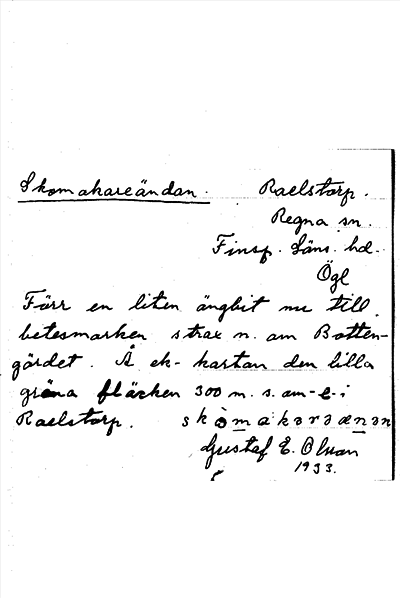 Skomakareändan. Raelstorp.
Regna sn.
Finsp. Läns hd.
Ögl
Förr en liten ängbit nu till
betesmarken strax n. om Botten-
gärdet. Å ek-kartan den lilla
gröna fläcken 300 m. s. om -e- i
Raelstorp. skòmakarəændən
Gustaf E. Olson
1933.